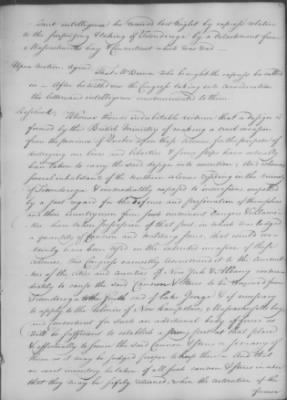 dent intelligence he received last Night by express relative
to the surprizing & taking of Ticonderoga by a detachment from
Massachusetts bay & Connecticut which was read
Upon motion Agreed, That Mr Brown who brought the express be called
in — After he withdrew the Congress taking into consideration
the letters and intelligence communicated to them
Resolved, Whereas there is indubitable evidence that a design is
formed by the British Ministry of making a cruel invasion
from the province of Quebec upon these colonies for the purpose of
destroying our lives and liberties & some steps have actually
been taken to carry the said design into execution, And whereas
several inhabitants of the northern colonies residing in the vicinity
of Ticonderoga & immediately exposed to incursions, impelled
by a just regard for the defence and preservation of themselves
and their countrymen from such imminent danger & calamities
have taken possession of that post, in which was lodged
a quantity of Cannon and military stores, that would cer-
tainly have been used in the intended invasion of these
colonies, this Congress earnestly recommend it to the commit-
tees of the cities and counties of New York & Albany immedi-
ately to cause the said Cannon & Stores to be removed from
Ticonderoga to the South end of Lake George & if necessary
to apply to the Colonies of New hampshire, Massachusetts bay
and Connecticut for such an additional body of forces as
will be sufficient to establish a strong post at that place
& effectually to secure the said Cannon & Stores or so many of
them as it may be judged proper to keep there And that
an exact inventory be taken of all such cannon & stores in order
that they may be safely returned when the restoration of the
former